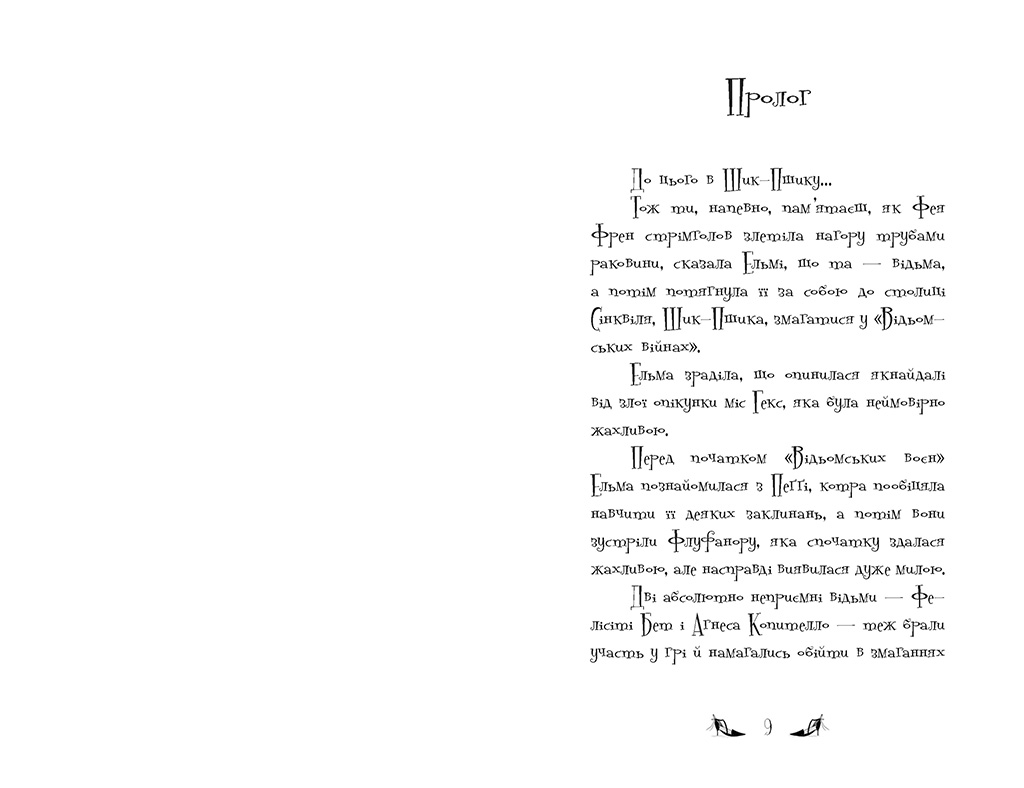 Пролог
До цього в Шик-Пшику...
Тож ти, напевно, пам'ятаєш, як Фея
Френ стрімголов злетіла нагору трубами
раковини, сказала Ельмі, що та — відьма,
а потім потягнула її за собою до столиці
Сінквіля, Шик-Пшика, змагатися у «Відьом-
ських війнах».
Ельма зраділа, що опинилася якнайдалі
від злої опікунки міс Гекс, яка була неймовірно
жахливою.
Перед початком «Відьомських воєн»
Ельма познайомилася з Пеґґі, котра пообіцяла
навчити її деяких заклинань, а потім вони
зустріли Флуфанору, яка спочатку здалася
жахливою, але насправді виявилася дуже милою.
Дві абсолютно неприємні відьми — Фе-
лісіті Бет і Агнеса Копителло — теж брали
участь у грі й намагались обійти в змаганнях
9